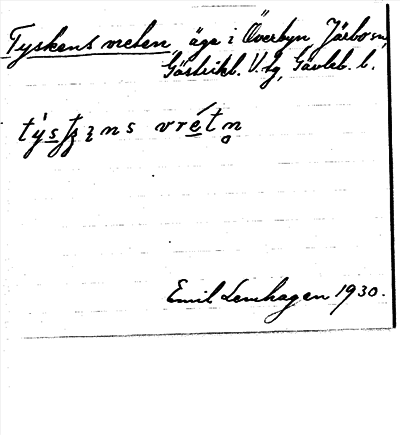 Tyskens vreten, äga i Överbyn Järbo sn,
Gästrikl. V. tg, Gävleb. l.
vrétn̥
Emil Lenhagen 1930.